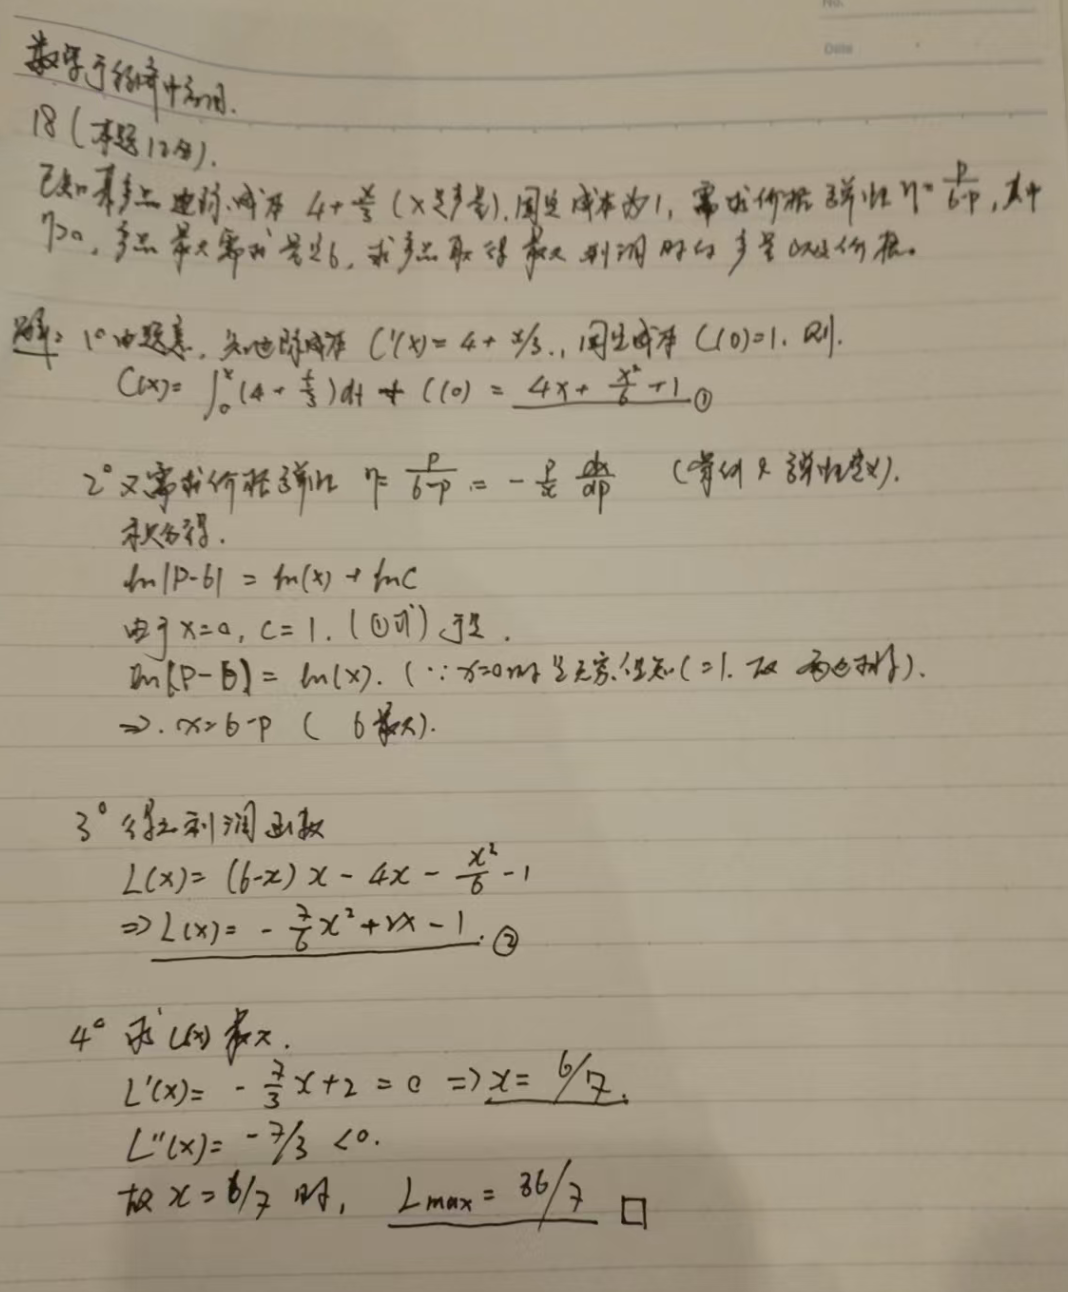 No.
Date
数学于经济中应用.
18 (本题12分).
已知某产品边际成本 4+x/3 (x是产量),固定成本为1, 需求价格弹性 η=P/(6-P), 其中
η>0, 产品最大需求量是6, 求产品取得最大利润时的产量以及价格。
解: 1° 由题意, 知边际成本 C'(x)=4+x/3., 固定成本 C(0)=1. 则.
C(x)=∫₀ˣ(4+t/3)dt + C(0) = 4x+x²/6+1 ①
2° 又需求价格弹性 η=P/(6-P)=-P/x dx/dP (弹性定义).
积分得.
ln|P-6| = ln(x) + lnC
由于 x=0, C=1. (①式) 于是.
ln|P-6| = ln(x). (∵ x=0时 C=1. 故).
⇒. x=6-P ( 6最大).
3° 得之利润函数
L(x)= (6-x)x - 4x - x²/6 - 1
⇒ L(x)= -7/6x²+2x-1. ②
4° 求L(x)最大.
L'(x)= -7/3x+2 = 0 ⇒ x= 6/7.
L''(x)= -7/3 <0.
故 x=6/7 时, Lmax = 36/7 □